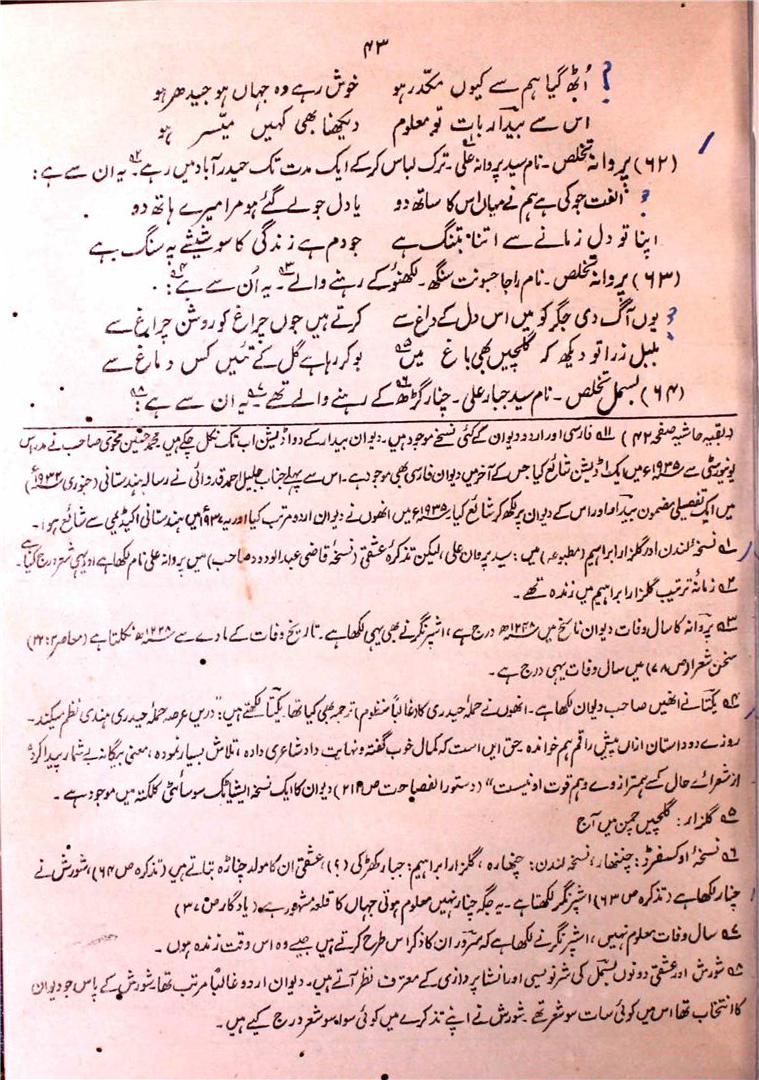 ۴۳
اُٹھ گیا ہم سے کیوں مکدّر ہو خوش رہے وہ جہاں ہو جیدھر ہو
اس سے بیدار بات تو معلوم دیکھنا بھی کہیں میّسر ہو
(۶۲) پروانہ تخلص ۔ نام سید پروانہ علی ۱؎ ۔ ترک لباس کرکے ایک مدت تک حیدرآباد میں رہے ۲؎ ۔ یہ ان سے ہے :
الفت جو کی ہے ہم نے میاں اس کا ساتھ دو یا دل جو لے گئے ہو مرا میرے ہاتھ دو
اپنا تو دل زمانے سے اتنا بتنگ ہے جو دم ہے زندگی کا سو شیشے پہ سنگ ہے
(۶۳) پروانہ تخلص ۔ نام راجا جسونت سنگھ ۔ لکھنؤ کے رہنے والے ۳؎ ۔ یہ اُن سے ہے ۴؎ :
یوں آگ دی جگر کو میں اس دل کے داغ سے کرتے ہیں جوں چراغ کو روشن چراغ سے
بلبل زرا تو دیکھ کہ گلچیں بھی باغ میں ۵؎ بو کر رہا ہے گل کے تئیں کس دماغ سے
(۶۴) بسمل تخلص ۔ نام سید جبار علی ۔ چنار گڑھ ۶؎ کے رہنے والے تھے ۷؎ ۔ یہ ان سے ہے ۸؎ :
(بقیہ حاشیہ صفحہ ۴۲) ۱۱؎ فارسی اور اردو دیوان کے کئی نسخے موجود ہیں ۔ دیوان بیدار کے دو اڈیشن اب تک نکل چکے ہیں محمد حسین محوی صاحب نے مدراس
یونیورسٹی سے ۱۹۳۵ء میں ایک اڈیشن شائع کیا جس کے آخر میں دیوان فارسی بھی موجود ہے ۔ اس سے پہلے جناب جلیل احمد قدوائی نے رسالہ ہندستانی (جنوری ۱۹۳۲ء)
میں ایک تفصیلی مضمون بیدار اور اس کے دیوان پر لکھ کر شائع کیا ۱۹۳۵ء میں انھوں نے دیوان اردو مرتب کیا اور یہ ۱۹۳۷ء میں ہندستانی اکیڈیمی سے شائع ہوا ۔
۱؎ نسخۂ لندن اور گلزار ابراہیم (مطبوعہ) میں : سید پروان علی ، لیکن تذکرۂ عشقی (نسخۂ قاضی عبدالودود صاحب) میں پروانہ علی نام لکھا ہے اور یہی شعر درج کیا ہے
۲؎ زمانۂ ترتیب گلزار ابراہیم میں زندہ تھے ۔
۳؎ پروانہ کا سال وفات دیوان ناسخ میں ۱۲۴۸ھ درج ہے ، اشپرنگر نے بھی یہی لکھا ہے ۔ تاریخ وفات کے مادے سے ۱۲۲۸ھ نکلتا ہے (معاصر ۲ : ۲۲)
سخن شعرا (ص ۷۸) میں سال وفات یہی درج ہے ۔
۴؎ یکتا نے انھیں صاحب دیوان لکھا ہے ۔ انھوں نے حملۂ حیدری کا (غالباً منظوم) ترجمہ بھی کیا تھا یکتا لکھتے ہیں : "دریں عرصہ حملہ حیدری ہندی نظم میکند ۔
روزے دو داستان ازاں پیش راقم ہم خواندہ ۔ حق ایں است کہ کمال خوب گفتہ و نہایت داد شاعری دادہ ، تلاش بسیار نمودہ ، معنی بیگانہ بے شمار پیدا کردہ
از شعرائے حال کسے بہتر از وے و ہم قوت او نیست" (دستور الفصاحت ص ۲۱۴) دیوان کا ایک نسخہ ایشیاٹک سوسائٹی کلکتہ میں موجود ہے ۔
۵؎ گلزار : گلچیں چمن میں آج
۶؎ نسخۂ اوکسفرڈ : چنھار ، نسخۂ لندن : چھارہ ، گلزار ابراہیم : جبار کھڑکی (؟) ، عشقی ان کا مولد چناڑہ بتاتے ہیں (تذکرہ ص ۶۴) ، شورش نے
چنار لکھا ہے (تذکرہ ص ۶۳) اشپرنگر لکھتا ہے ۔ یہ جگہ چنار نہیں معلوم ہوتی جہاں کا قلعہ مشہور ہے (یادگار ص ۳۷)
۷؎ سال وفات معلوم نہیں ، اشپرنگر نے لکھا ہے کہ سرور ان کا ذکر اس طرح کرتے ہیں جیسے وہ اس وقت زندہ ہوں ۔
۸؎ شورش اور عشقی دونوں بسمل کی نثر نویسی اور انشا پردازی کے معترف نظر آتے ہیں ۔ دیوان اردو غالباً مرتب تھا ، شورش کے پاس جو دیوان
کا انتخاب تھا اس میں کوئی سات سو شعر تھے شورش نے اپنے تذکرے میں کوئی سوا سو شعر درج کیے ہیں ۔